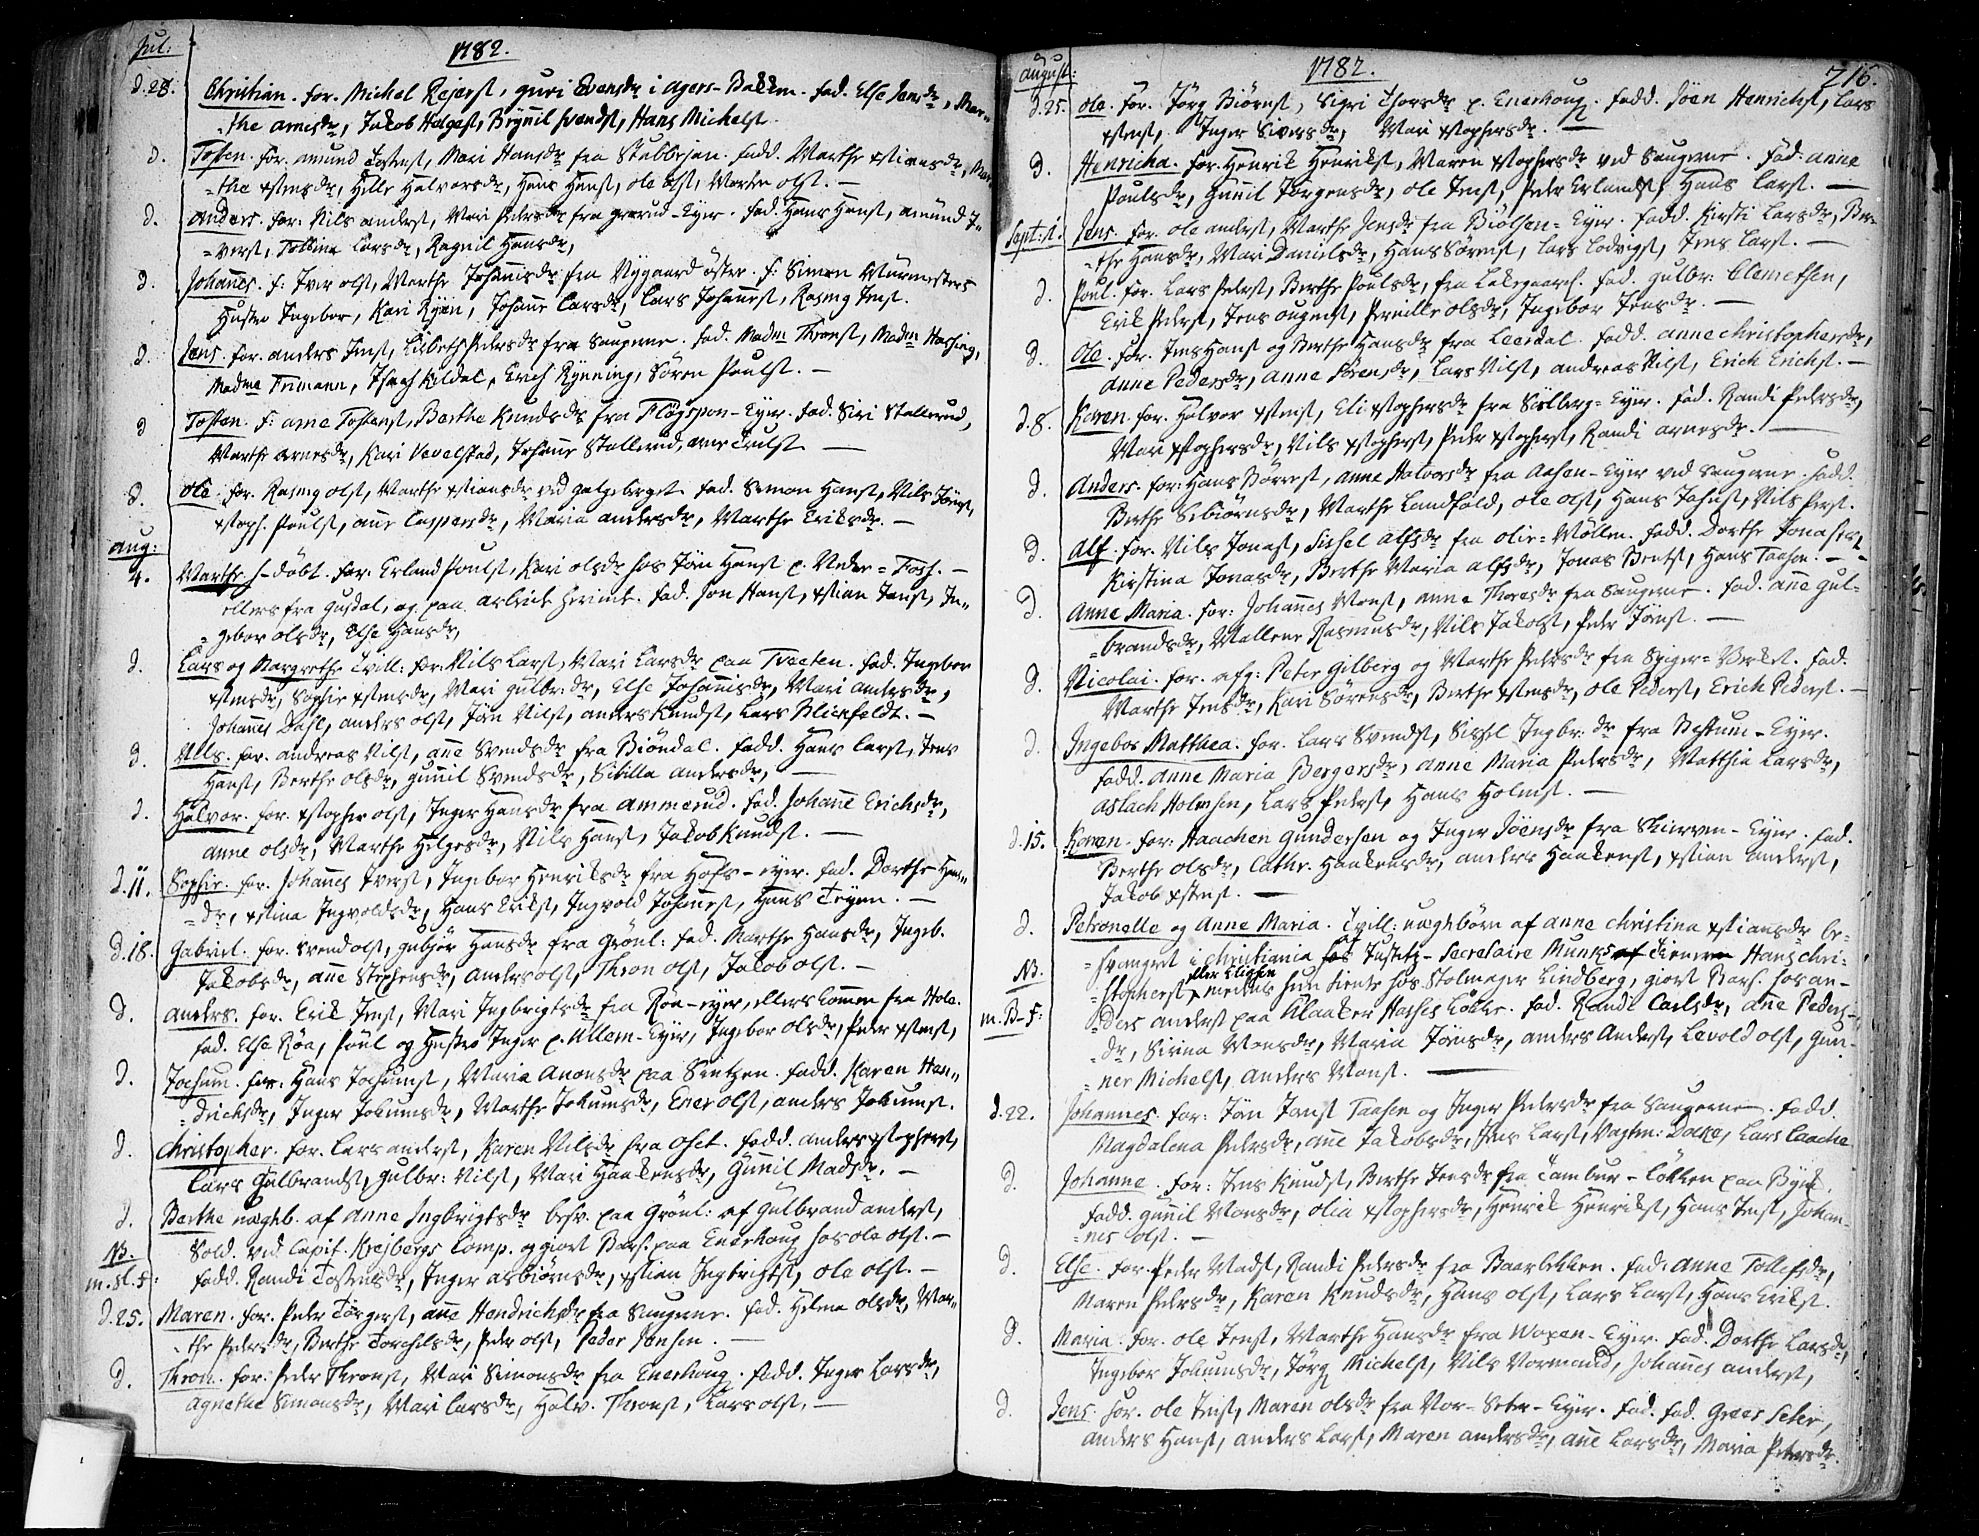 Jul: 1782.
d. 28. Christian. for. Michel Rejerst, guri Evensdr i agers-Bakken. fad. Else Jensdr, Mar-
the arnesdr, Jakob Holgest, Brynnil svendst, Hans Michelst.
d. Tosten. for. amund Tostenst, Mari Hansdr fra Stubbejen. fadd. Marthe xstiansdr, Mar-
the xstensdr, Hille Halvorsdr, Hans Hanst, ole olst, Morten olst. —
d. anders. for. Nils anderst, Mari Pedersdr fra grorud-Eyer. fad. Hans Hanst, amund I-
verst, Tollina Larsdr, Ragnil Hansdr,
d. Johanes. f: Iver olst, Marthe Johannisdr fra Nygaard östre. f: Simen Murmesters
Hustro Ingebor, Kari Ryen, Johanne Larsdr, Lars Johannest, Rasmg Jenst.
d. Jens. for. anders Jenst, Lisbeth Pedersdr fra Saugerne. fad. Madm Thronst, Madm Hassing,
Madme Frimann, Isach Kildal, Erich Rynning, Sören Poulst. —
d Tosten. f: arne Tostenst, Berthe Knudsdr fra Flögspon-Eyer. fad. Siri Stallerud,
Marthe arnesdr, Kari Vevelstad, Johanne Stallerud, arne Trulst —
d. ole. for. Rasmg olst, Marthe xstiansdr ved galgeberget. fad. Semon Hanst, Nils Jörgst,
xstoph. Poulst, ane Caspersdr, Maria andersdr, Marthe Eriksdr. —
aug:
4. Marthe h-döbt. for. Erland Poulst, Kari olsdr hos Jörn Hanst p. Neder-Foss. —
ellers fra Gusdal, og paa arbeide herinde. fad. Jon Hanst, xstian Jenst, In-
gebor olsdr, Else Hansdr,
d. Lars og Margrethe Tvill: for. Nils Larst, Mari Larsdr paa Tveeten. fad. Ingebor
xstensdr, Sophie xstensdr, Mari gulbr: dr, Else Johannisdr, Mari andersdr,
Johanes Dahl, anders olst, Jörn Nilst, anders Knudst, Lars Blickfeldt. —
d. Nils. for. andreas Nilst, ane Svendsdr fra Biöndal. fadd. Hans Larst, Jens
Hanst, Berthe olsdr, gunnil Svendsdr, Sibilla andersdr, —
d. Halvor. for. xstopher olst, Inger Hansdr fra ammerud. fad. Johane Erichsdr,
anne olsdr, Marthe Helgesdr, Nils Hanst, Jakob Knudst. —
d. 11. Sophie. for. Johanes Iverst, Ingebor Henriksdr fra Hofs-eyer. fad. Dorthe Hans-
dr, xstina Ingvoldsdr, Hans Erikst, Ingvold Johanest, Hans Tryen. —
d. 18. Gabriel. for. Svend olst, gubjör Hansdr fra Grönl: fad. Marthe Hansdr, Ingeb.
Jakobsdr, ane Stephensdr, anders olst, Thron olst, Jakob olst. —
d. anders. for. Erik Jenst, Mari Ingbrigtsdr fra Roa-eyer, ellers kommen fra Hole.
fad. Else Röa, Poul og Hustro Inger p. Ullern-Eyer, Ingebor olsdr, Peder xstenst,
d. Jochum. for. Hans Jochumst, Maria Anonsdr paa Sintzen. fadd. Karen Hen-
dricksdr, Inger Jokumsdr, Marthe Jokumsdr, Ener olst, anders Jokumst.
d. Christopher. for. Lars anderst, Karen Nilsdr fra oset. fadd. anders xstopherst,
Lars Gulbrandst, Gulbr: Nilst, Mari Haakensdr, Gunnil Madsdr. —
d. Berthe uægteb. af Anne Ingbrigtsdr besv. paa Grönl: af Gulbrand anderst,
NB. Sold. ved Capit. Krejbergs Comp. og giort Bars. paa Enerhoug hos ole olst. —
m. sl. f: fadd. Randi Tostensdr, Inger asbiörnsdr, xstian Ingbrigtst, ole olst. —
d. 25. Maren. for. Peder Torgerst, ane Hendrichsdr fra Saugerne. fad. Helena olsdr, Mar-
the Pedersdr, Berthe Torchilsdr, Peder olst, Peder Jensen. —
d. Thron. for. Peder Thronst, Mari Simonsdr fra Enerhoug. fadd. Inger Larsdr,
Agnethe Simonsdr, Mari Larsdr, Halv. Thronst, Lars olst, —
august: 1782. 216.
d. 25. ole. for. Jörg Biörnst, Sigri Thorsdr p. Enerhoug. fadd. Jöen Henrichst, Lars
xstenst, Inger Siversdr, Mari xstophersdr. —
d. Henricha. for. Henrik Henrikst, Maren xstophersdr ved Saugerne. fad. anne
Poulsdr, gunnil Jörgensdr, ole Jenst, Peder Erlandst, Hans Larst. —
Sept: 1. Jens. for. ole anderst, Marthe Jensdr fra Biölsen-Eyer. fadd. Kirsti Larsdr, Ber-
the Hansdr, Mari Danielsdr, Hans Sörenst, Lars Lodvigst, Jens Larst. —
d. Poul. for. Lars Pederst, Berthe Poulsdr, fra Lakegaard. fad. Gulbr: Clemetsen,
Erik Pederst, Jens ougenst, Pernille olsdr, Ingebor Jensdr. —
d. Ole. for. Jens Hanst og Berthe Hansdr fra Leerdal. fadd. anne christophersdr,
anne Pedersdr, anne Sörensdr, Lars Nilst, andreas Nilst, Erich Erichst. —
d. 8. Karen. for. Halvor xstenst, Eli xstophersdr fra Sölberg-Eyer. fad. Randi Pedersdr,
Mari xstophersdr, Nils xstopherst, Peder xstopherst, Randi arnesdr. —
d. Anders. for: Hans Börrest, anne Halvorsdr fra Aasen-Eyer ved Saugerne. fadd.
Berthe Sebiörnsdr, Marthe Landfald, ole olst, Hans Johnst, Nils Perst.
d. Alf. for. Nils Jonast, Sissel alfsdr fra olie-Möllen. fadd. Dorthe Jonasest,
Kirstina Jonasdr, Berthe Maria alfsdr, Jonas Bentst, Hans Taasen. —
d. Anne Maria. for: Johanes Monst, anne Thoresdr fra Saugerne. fad. ane Gul-
brandsdr, Mallene Rasmusdr, Nils Jakobst, Peder Jörnst. —
d. Nicolai. for. afg: Peter Gilberg og Marthe Pedersdr fra Spiger-Verket. fad.
Marthe Jensdr, Kari Sörensdr, Berthe xstensdr, ole Pederst, Erich Pederst. —
d. Ingebor Matthea. for. Lars Svendst, Sissel Ingbr. dr fra Refstum-Eyer.
fadd. Anne Maria Bergersdr, Anne Maria Pedersdr, Matthia Larsdr,
Aslach Holmsen, Lars Pederst, Hans Holmst. —
d. 15. Karen. for: Haachen Gundersen og Inger Jöensdr fra Skierven-Eyer. fad.
Berthe olsdr, Cathr. Haakensdr, anders Haakenst, xstian anderst,
Jakob xstenst. —
d. Petronelle og Anne Maria. Tvill: uægtebörn af anne christina xstiansdr be-
svangret i christiania af Justitz-Secretaire Munks tiener Hans Chri-
NB. stopherst eller Eligsen, medens hun tiente hos Stolmager Lindberg, giort Bars. hos an-
m. B-f: ders anderst paa Klaaker Hasses Lökke. fad. Randi Carlsdr, ane Peders-
dr, Sirina Monsdr, Maria Jörnsdr, anders Anderst, Levold olst, Gun-
ner Michelst, anders Monst. —
d. 22. Johannes. for: Jörn Jonst Taasen og Inger Pedersdr fra Saugerne. fadd.
Magdalena Pedersdr, ane Jakobsdr, Jens Larst, Vagtm: Dakke, Lars Laache
d. Johanne. for: Jens Knudst, Berthe Jensdr fra Tambur-Lökken paa Byeg.
fadd. gunnil Monsdr, olia xstophersdr, Henrik Henrikst, Hans Jenst, Johan-
nes olst. —
d. Else. for. Peder Madst, Randi Pedersdr fra Baarlökken. fad: Anne Tollefsdr,
Maren Pedersdr, Karen Knudsdr, Hans olst, Lars Larst, Hans Erikst.
d. Maria. for. ole Jenst, Marthe Hansdr fra Voxen-Eyer. fad. Dorthe Larsdr,
Ingebor Jokumsdr, Jörg Michelst, Nils Normand, Johanes anderst,
d. Jens. for. ole Jenst, Maren olsdr fra Nor-Seter-Eyer. fad. fad. Grees Seter,
anders Hanst, anders Larst, Maren andersdr, ane Larsdr, Maria Petersdr.